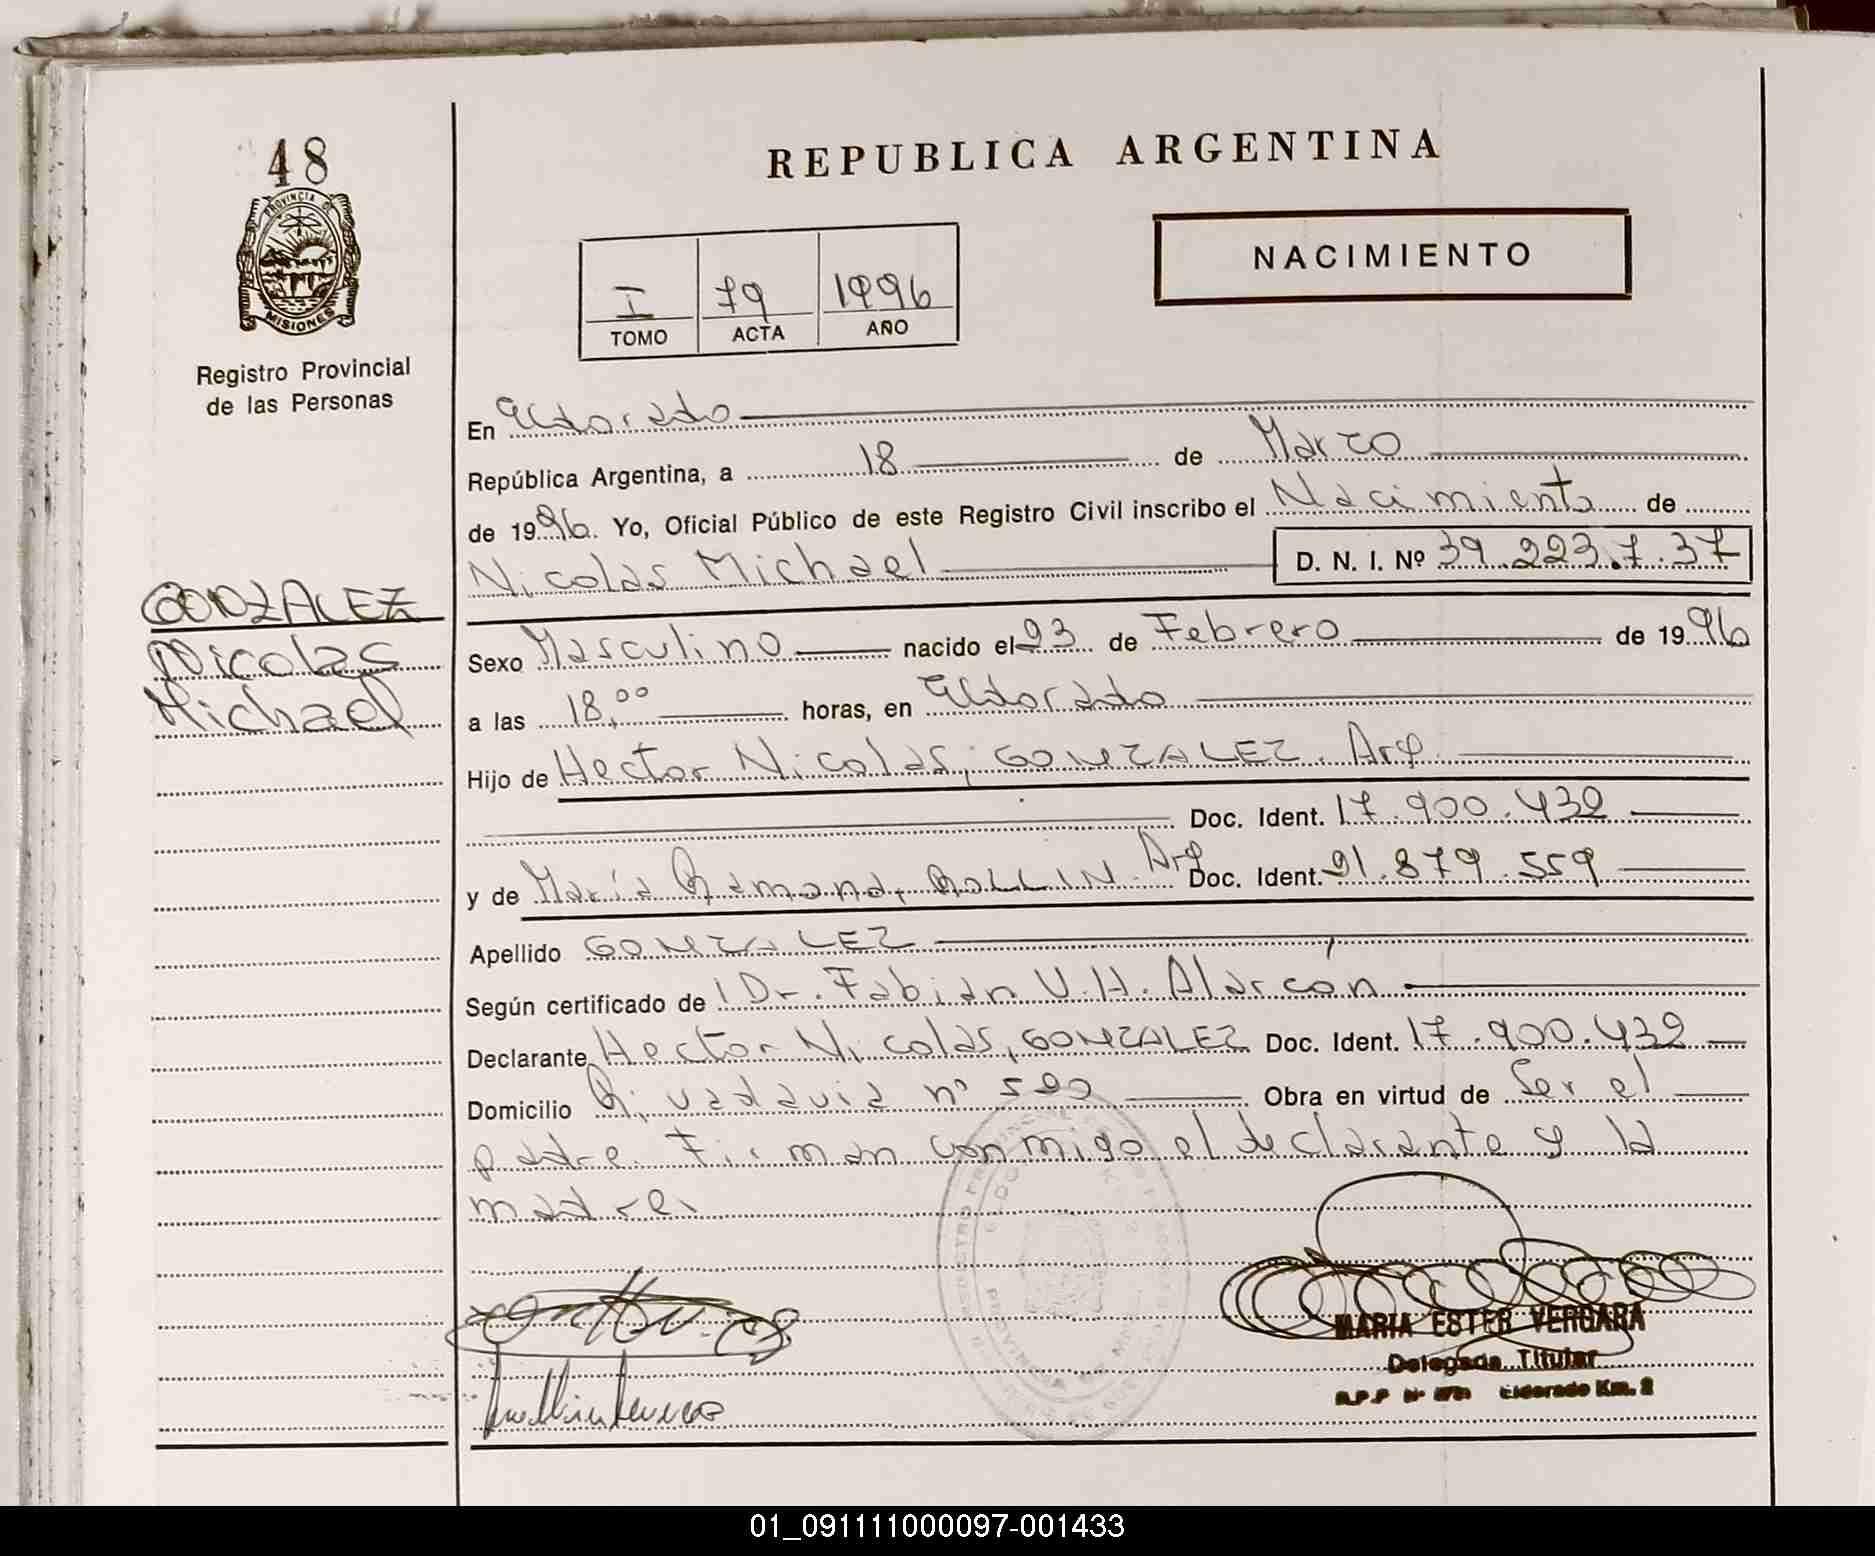 48
PROVINCIA DE
MISIONES
Registro Provincial
de las Personas
GONZALEZ
Nicolas
Michael
REPUBLICA ARGENTINA
NACIMIENTO
I 79 1996
TOMO ACTA AÑO
En Eldorado
República Argentina, a 18 de Marzo
de 1996. Yo, Oficial Público de este Registro Civil inscribo el Nacimiento de
Nicolas Michael D. N. I. Nº 39.223.737
Sexo Masculino nacido el 23 de Febrero de 1996
a las 18,00 horas, en Eldorado
Hijo de Hector Nicolas, GONZALEZ. Arg.
Doc. Ident. 17.900.432
y de María Ramona, ROLLIN. Arg Doc. Ident. 21.879.559
Apellido GONZALEZ
Según certificado de Dr. Fabian U.H. Alarcón
Declarante Hector Nicolas, GONZALEZ Doc. Ident. 17.900.432
Domicilio Rivadavia nº Obra en virtud de Ser el
padre. Firman conmigo el declarante y la
madre.
MARIA ESTER VERGARA
Delegada Titular
R.P.P Nº Eldorado Km. 2
01_091111000097-001433